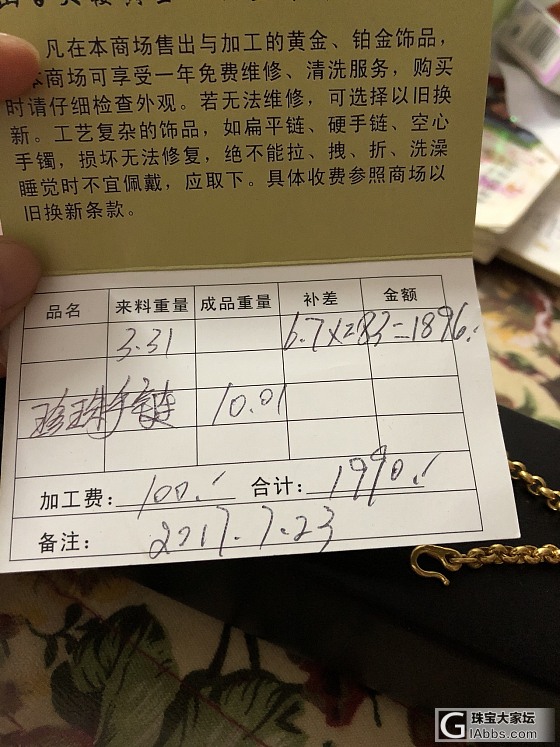 凡在本商场售出与加工的黄金、铂金饰品,
本商场可享受一年免费维修、清洗服务,购买
时请仔细检查外观。若无法维修,可选择以旧换
新。工艺复杂的饰品,如扁平链、硬手链、空心
手镯,损坏无法修复,绝不能拉、拽、折、洗澡
睡觉时不宜佩戴,应取下。具体收费参照商场以
旧换新条款。
品名 来料重量 成品重量 补差 金额
3.31 6.7×283=1896.
珍珠手链 10.01
加工费:100. 合计:1990.
备注:2017.7.23
G 珠宝大家坛
1Abbs.com